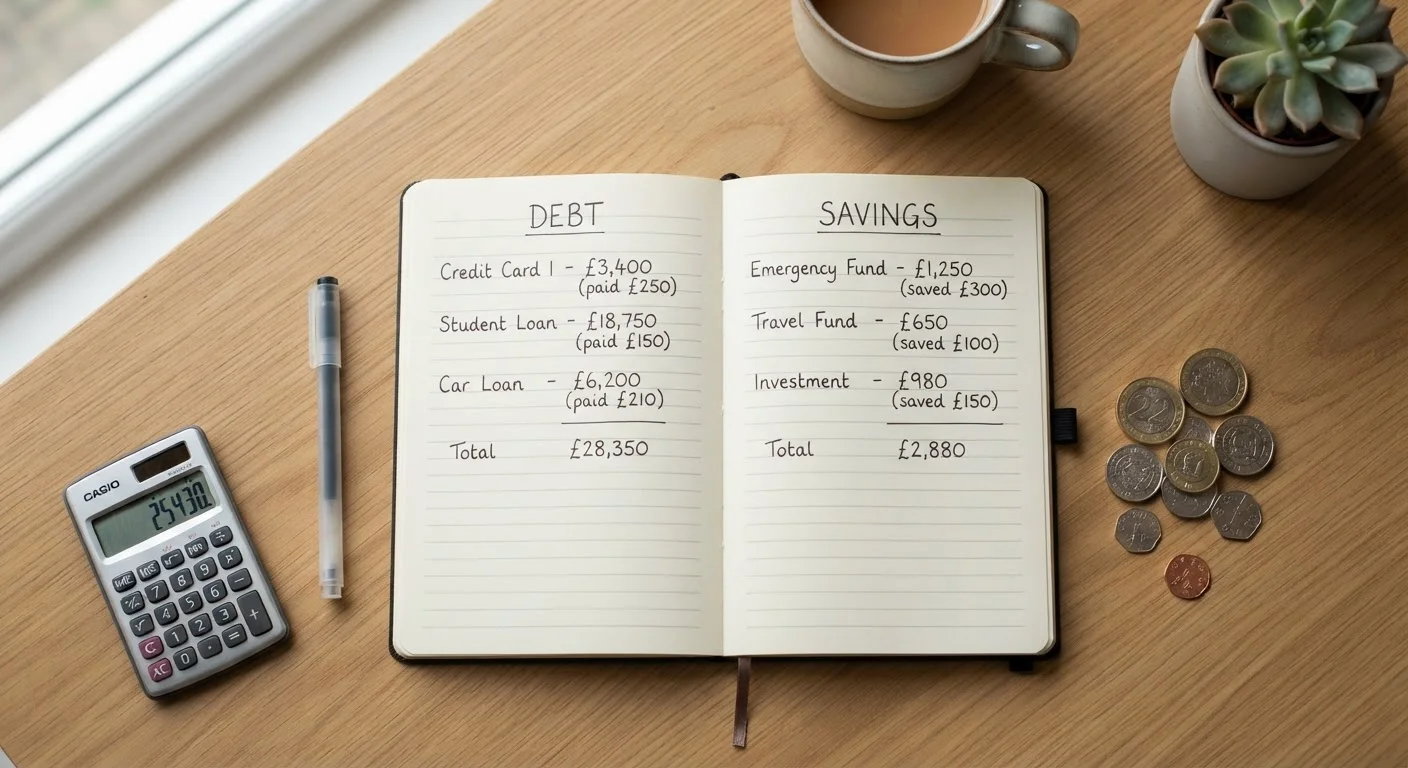 DEBT
Credit Card 1 - £3,400
(paid £250)
Student Loan - £18,750
(paid £150)
Car Loan - £6,200
(paid £210)
Total £28,350
SAVINGS
Emergency Fund - £1,250
(saved £300)
Travel Fund - £650
(saved £100)
Investment - £980
(saved £150)
Total £2,880
CASIO
25430.
7 8 9
4 5 6 −
C 1 2 3 +
AC 0 · =